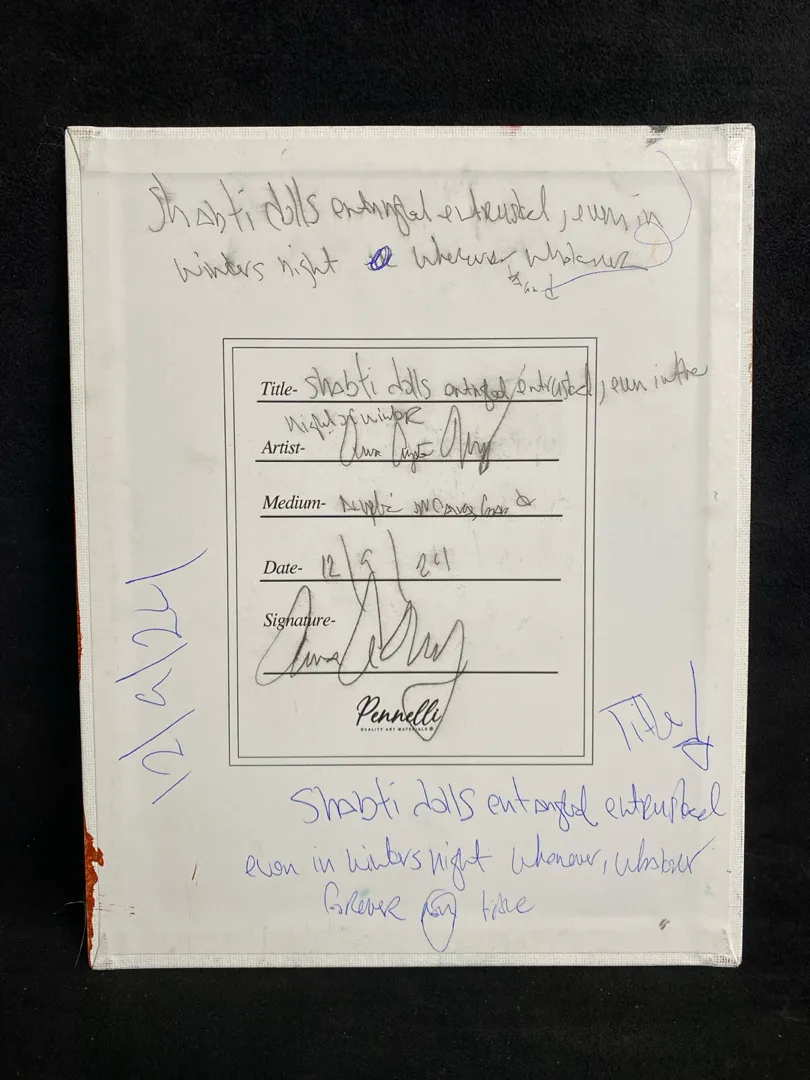 Shabti dolls entangled entrusted, even in
winters night wherever whatever
Title- Shabti dolls entangled entrusted, even in the
night of winter
Artist-
Medium- Acrylic on Canvas board
Date- 12/9/24
Signature-
Pennelli
QUALITY ART MATERIALS
12/9/24
Title
Shabti dolls entangled entrusted
even in winters night whenever, whatever
forever time